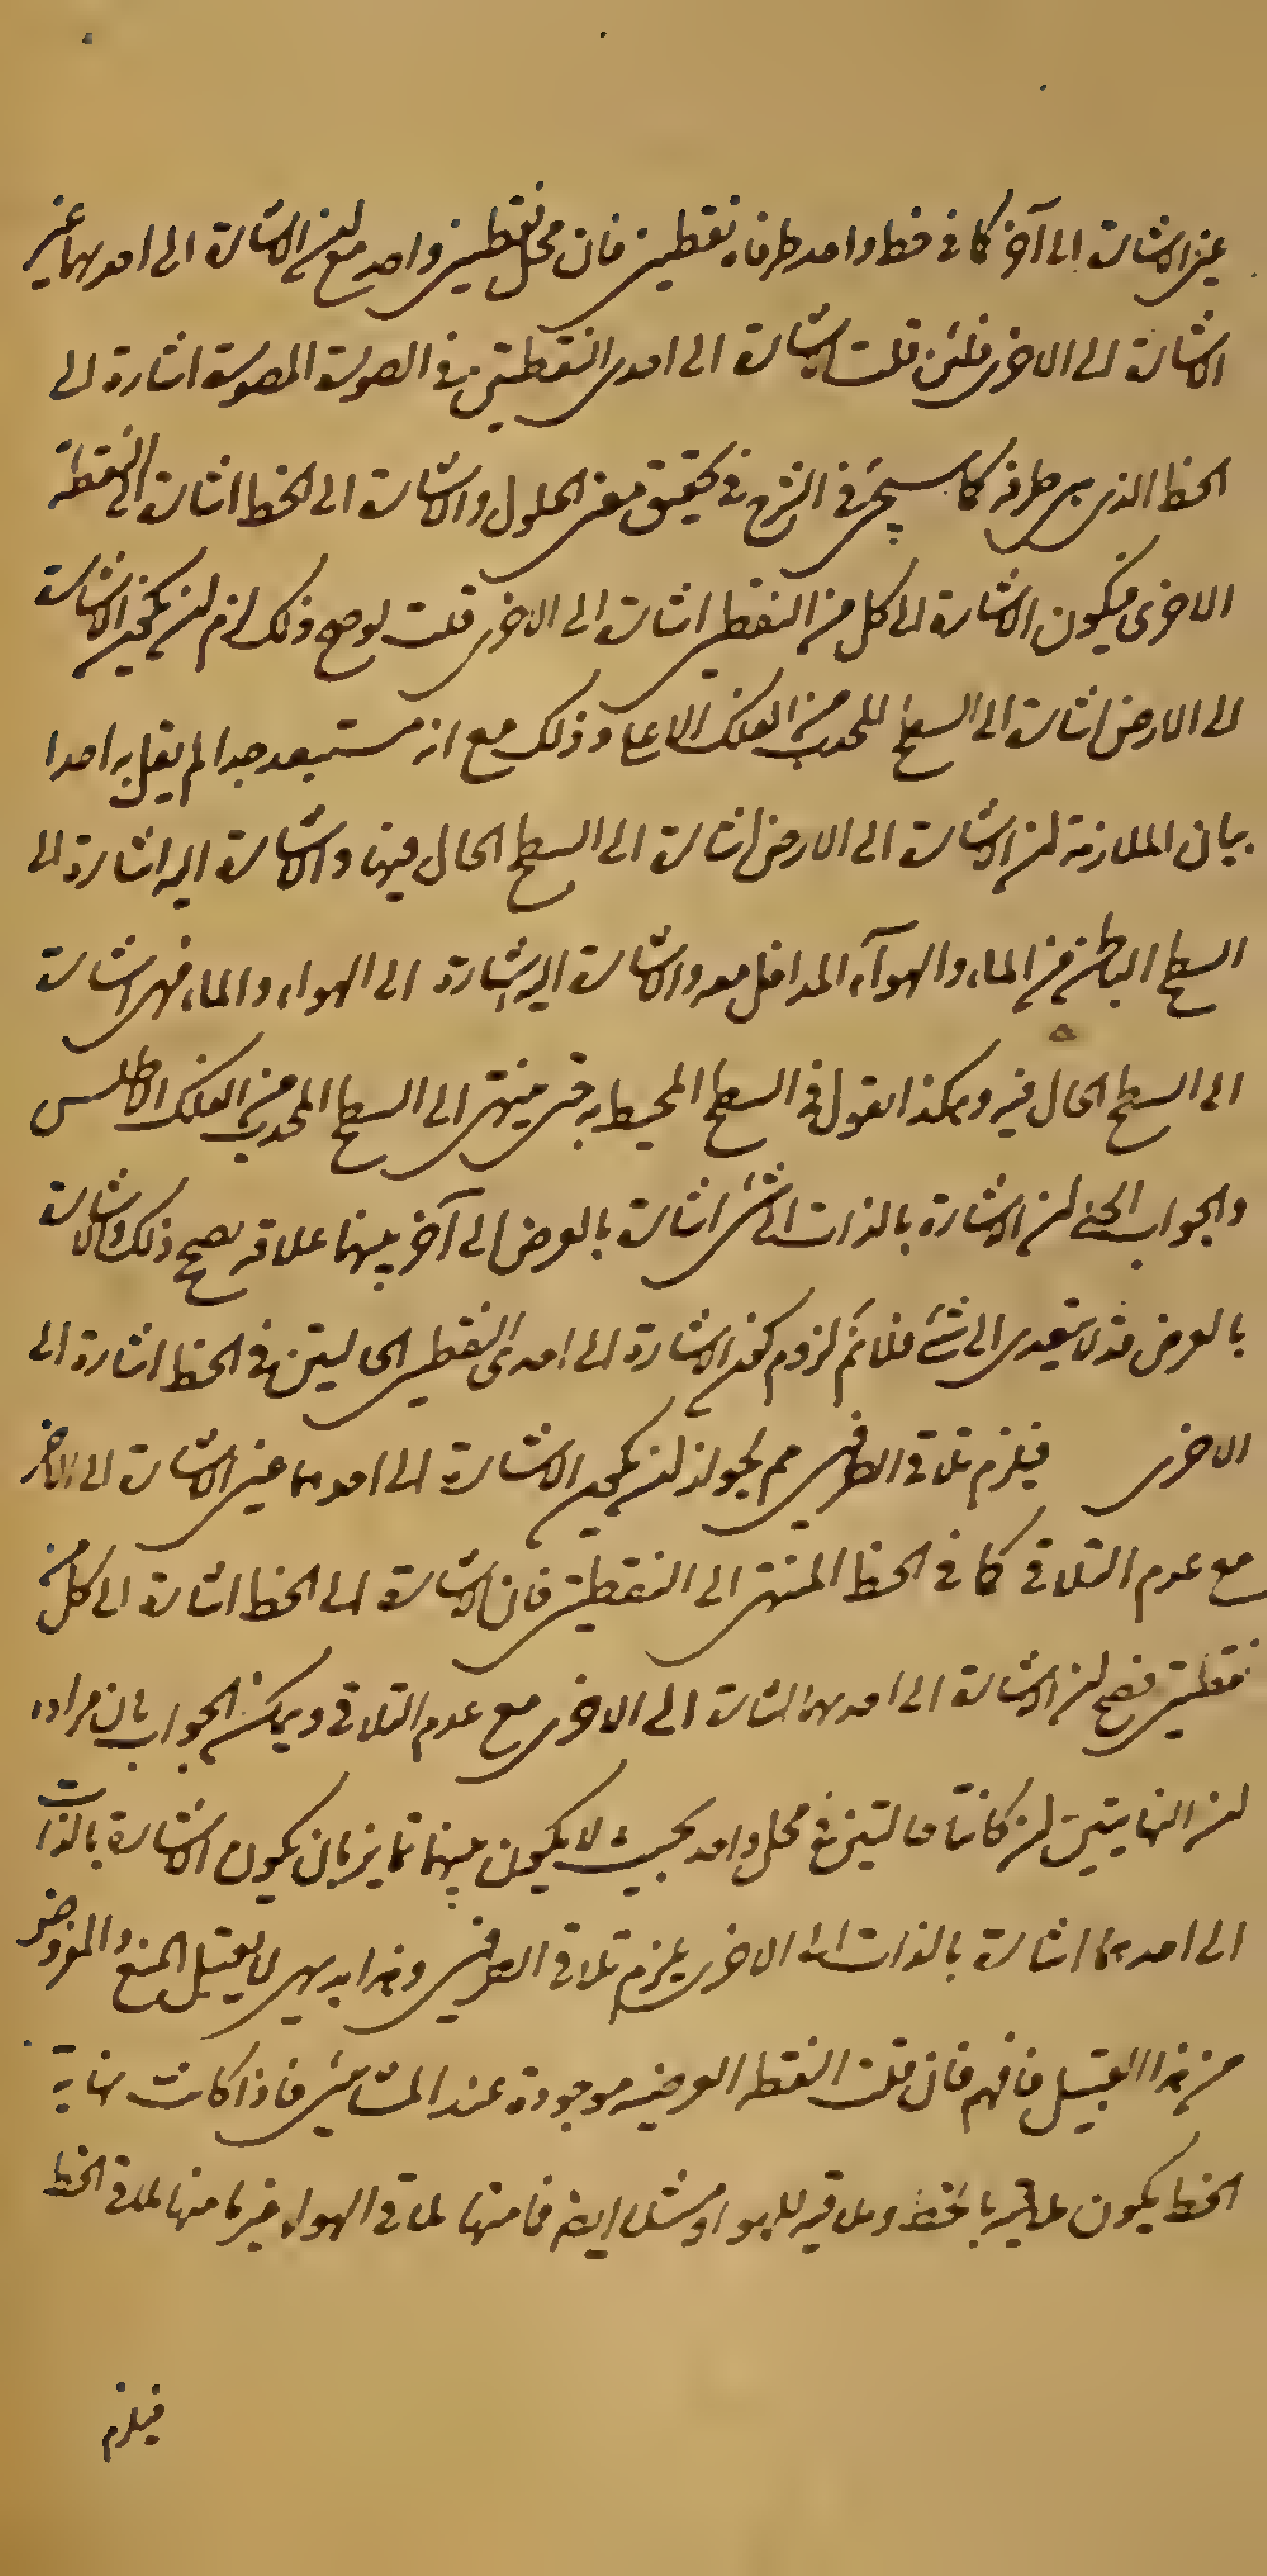 عين الاشارة الى آخر كما في خط واحد طرفاه نقطتين فان محل نقطتين واحد مع ان الاشارة الى احديهما غير
الاشارة الى الاخرى فلئن قلت الاشارة الى احدى النقطتين في الصورة المصورة اشارة الى
الخط الذي هي طرفه كما سيجئ في الشرح في تحقيق معنى الحلول والاشارة الى الخط اشارة الى النقطة
الاخرى فيكون الاشارة الى كل من النقطتين اشارة الى الاخرى قلت لو صح ذلك لزم ان يكون الاشارة
الى الارض اشارة الى السطح المحدب من الفلك الاعلى وذلك مع انه مستبعد جدا لم يقل به احدا
بيان الملازمة ان الاشارة الى الارض اشارة الى السطح الحال فيها والاشارة اليه اشارة الى
السطح الباطن من الماء والهوآء المداخل معه والاشارة اليه اشارة الى الهواء والماء فهي اشارة
الى السطح الحال فيه وهكذا نقول في السطح المحيط به حتى ينتهى الى السطح المحدب من الفلك الاطلس
والجواب الحق ان الاشارة بالذات الى شئ اشارة بالعرض الى آخر بينهما علاقة يصح ذلك والاشارة
بالعرض قد لا يتعدى الى شئ فلا نم لزوم كون الاشارة الى احدى النقطتين الحاليتين في الخط اشارة الى
الاخرى فيلزم تلاقي الطرفين مم لجواز ان يكون الاشارة الى احدهما عين الاشارة الى الاخر
مع عدم التلاقي كما في الخط المنتهى الى النقطتين فان الاشارة الى الخط اشارة الى كل من
نقطتين فصح ان الاشارة الى احديهما اشارة الى الاخرى مع عدم التلاقي ويمكن الجواب بان مراده
ان النهايتين ان كانتا حالتين في محل واحد بحيث لا يكون بينهما تمايز بان يكون الاشارة بالذات
الى احدهما اشارة بالذات الى الاخرى يلزم تلاقي الطرفين وهذا بديهى لا يقبل المنع والمفروض
من هذا القبيل فافهم فان قلت النقطة العرضيه موجودة عند المشائين فاذا كانت نهاية
الخط يكون ملاقية بالخط وملاقية للهواء مثلا ايضا فما منها يلاقي الهواء غير ما منها يلاقي الخط
فيلزم